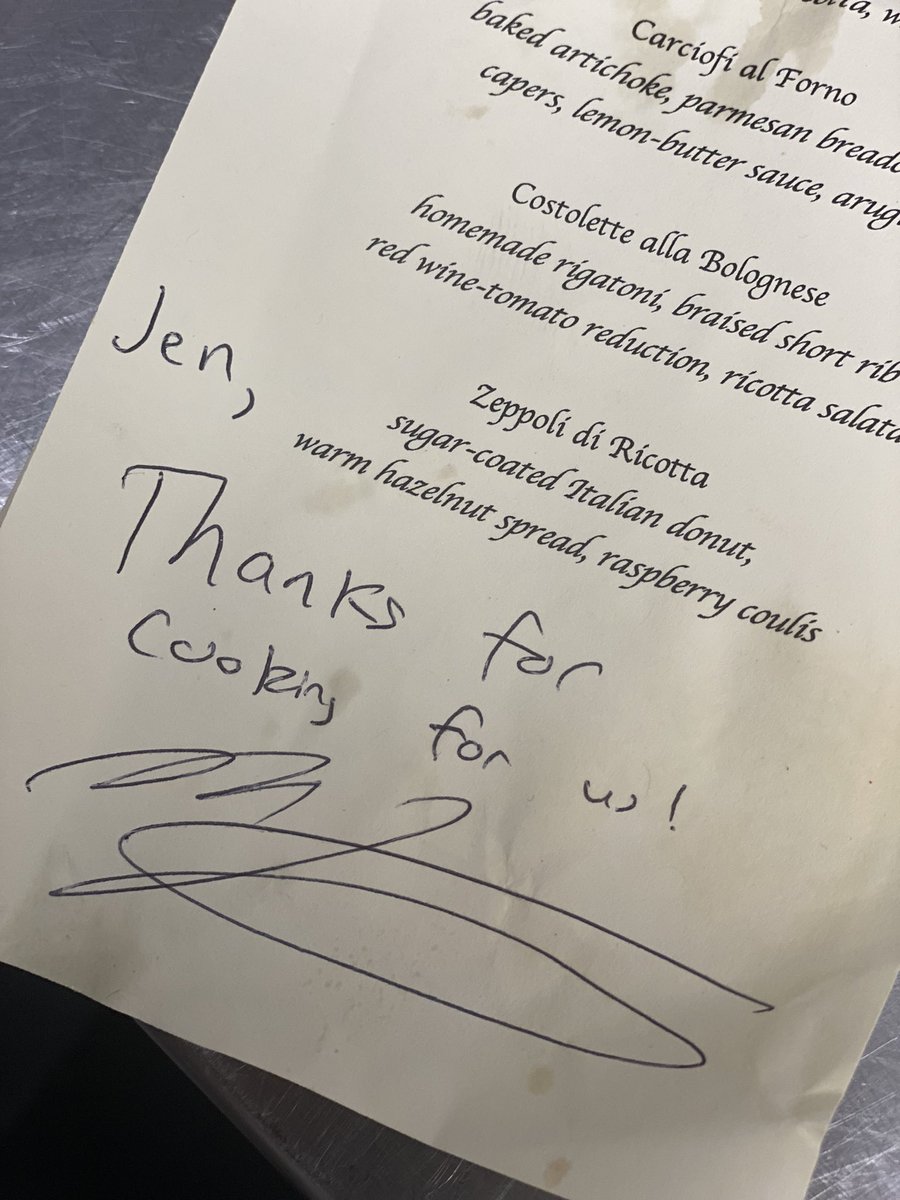 Carciofi al Forno
baked artichoke, parmesan
capers, lemon-butter sauce,
Costolette alla Bolognese
homemade rigatoni, braised short rib
red wine-tomato reduction, ricotta salata
Zeppoli di Ricotta
sugar-coated Italian donut,
warm hazelnut spread, raspberry coulis
Jen,
Thanks for
Cooking for us!